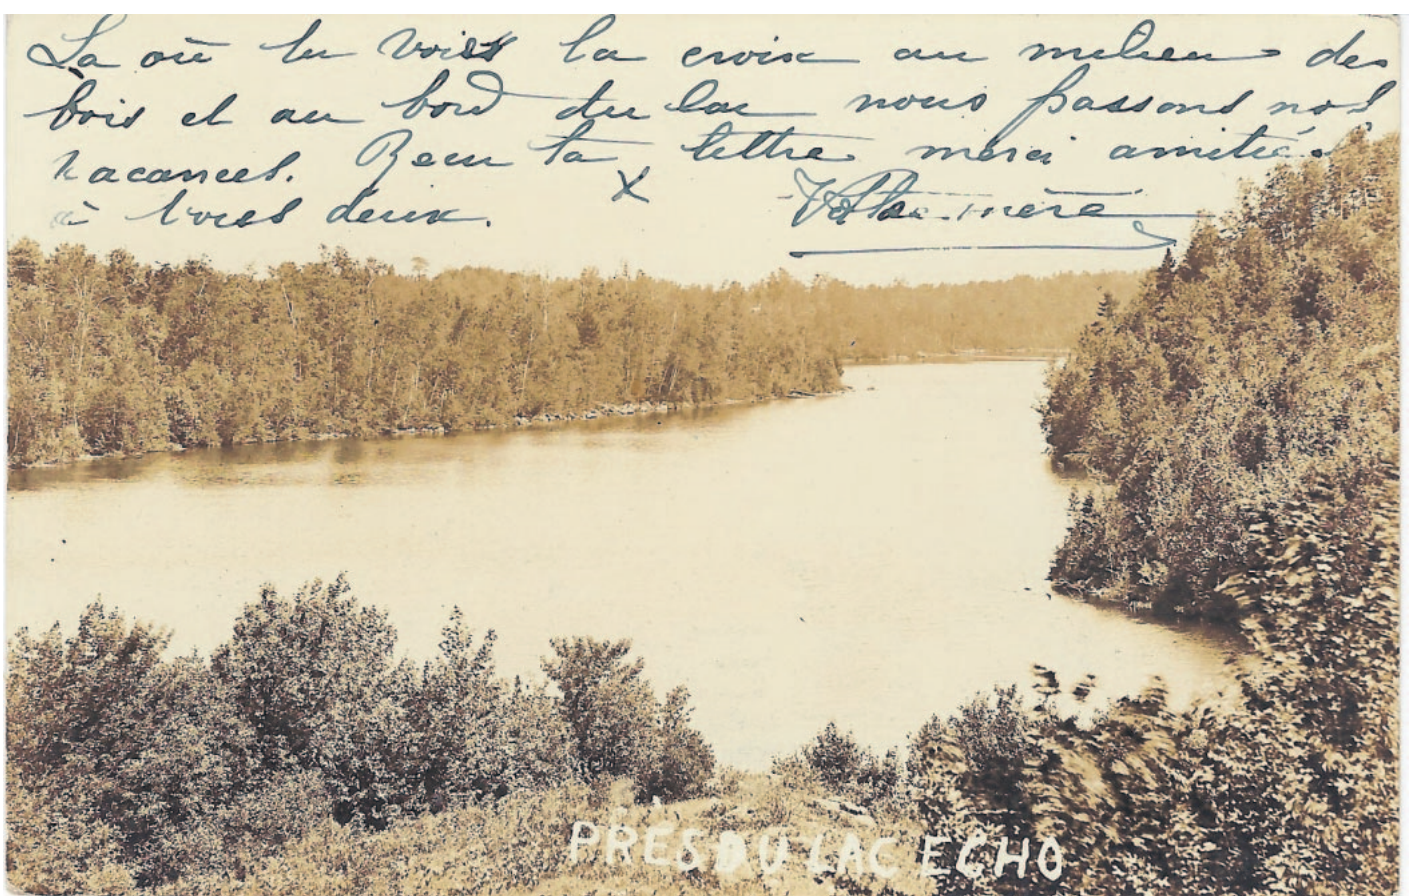 La où tu vois la croix au milieu des
bois et au bord du lac nous passons nos
vacances. Recu ta lettre merci amitiés
à vous deux. X Votre mère
PRES DU LAC ECHO